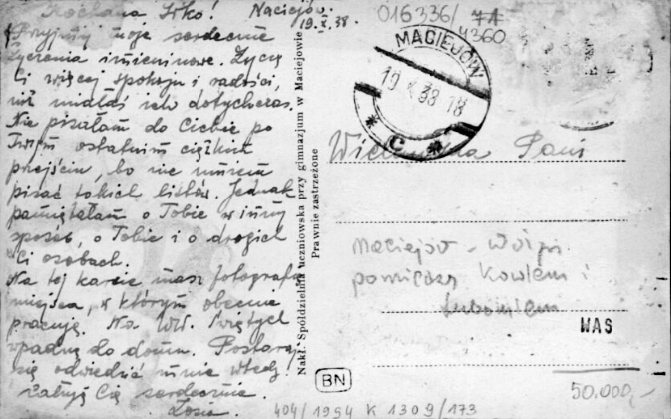 Kochana Irko! Maciejów.
19.X.38.
Przyjmij moje serdeczne
życzenia imieninowe. Życzę
Ci więcej spokoju i radości,
niż miałaś dotychczas.
Nie pisałam do Ciebie po
Twym ostatnim ciężkim
przejściu, bo nie umiem
pisać takich listów. Jednak
pamiętałam o Tobie w inny
sposób, o Tobie i o drogich
Ci osobach.
Na tej karcie masz fotografię
miejsca, w którym obecnie
pracuję. Na WW. Świętych
wpadnę do domu. Postaraj
się odwiedzić mnie wtedy.
Całuję Cię serdecznie.
Zosia.
Nakł. Spółdzielnia uczniowska przy gimnazjum w Maciejowie
Prawnie zastrzeżone
BN
016336/
4360
MACIEJÓW
19 X 38 18
* C *
Wielmożna Pani
Maciejów - Wołyń.
pomiędzy Kowlem i
Lubomlem
WAS
50.000,-
404/1994 K 1309/173